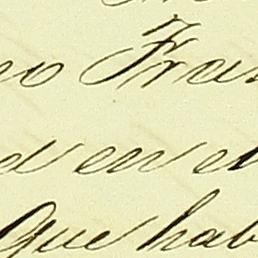 eo Fran
d en el
que hab